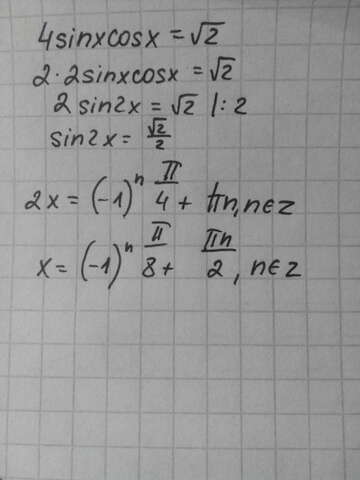 4sinxcosx = √2
2·2sinxcosx = √2
2 sin2x = √2 |: 2
sin2x = √2/2
2x = (-1)ⁿ π/4 + πn, n∈z
x = (-1)ⁿ π/8 + πn/2, n∈z